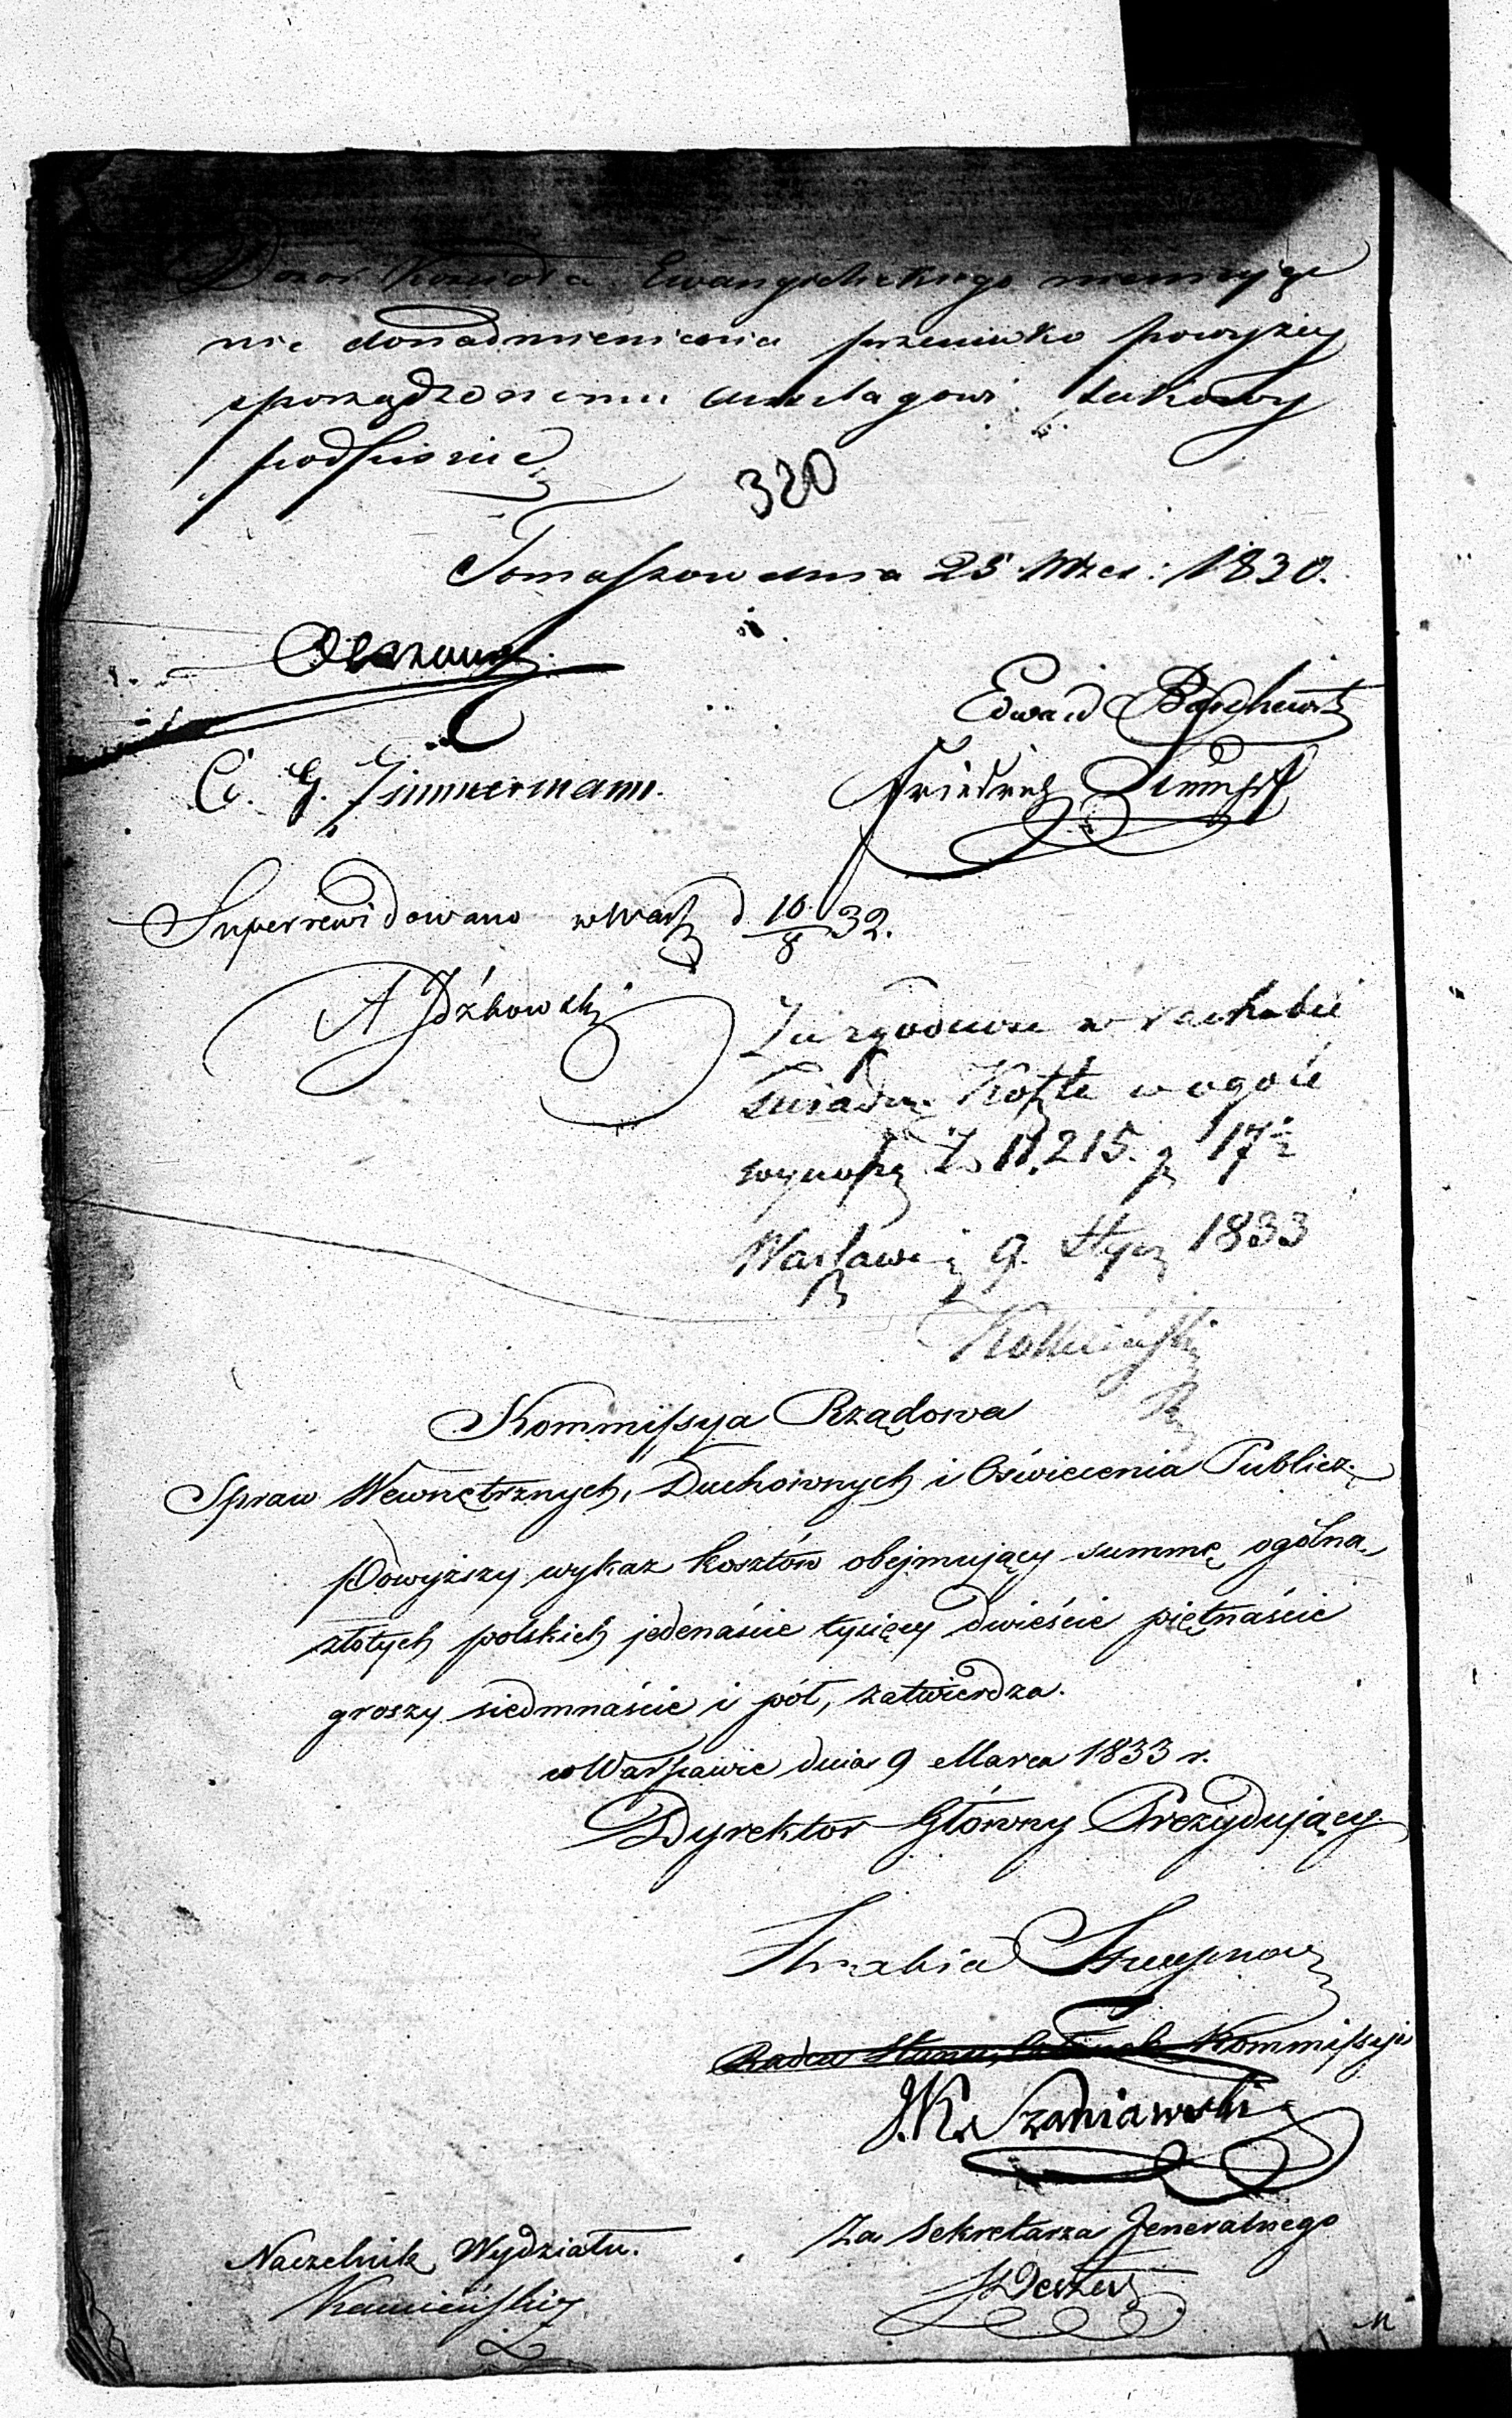 Dozór Kościoła Ewangelickiego niemając
nic donadmienienia przeciwko powyżey
sporządzonemu Anszlagowi takowy
podpisuie
320
Tomaszow dnia 25 Wrześ: 1830.
Edward Barchwitz
C. G. Zimmermann.
Friedrich Stumpf
Superrewidowano w Warsz d 10/8 32.
A Idźkowski
Za zgodność w rachubie
świadczę Koszta w ogóle
wynoszą Z 11,215. g 17 1/2
Warszawa 9. Stycz 1833
Kommissya Rządowa
Spraw Wewnętrznych, Duchownych i Oświecenia Publicz:
Powyższy wykaz kosztów obejmujący summę ogólną
złotych polskich jedenaście tysięcy dwieście piętnaście
groszy siedmnaście i pół, zatwierdza.
w Warszawie dnia 9 Marca 1833 r.
Dyrektor Główny Prezydujący
Hrabia Strogonow
Radca Stanu, Członek Kommissyi
J.K. Szaniawski
Za Sekretarza Jeneralnego
Naczelnik Wydziału.
Kamieński